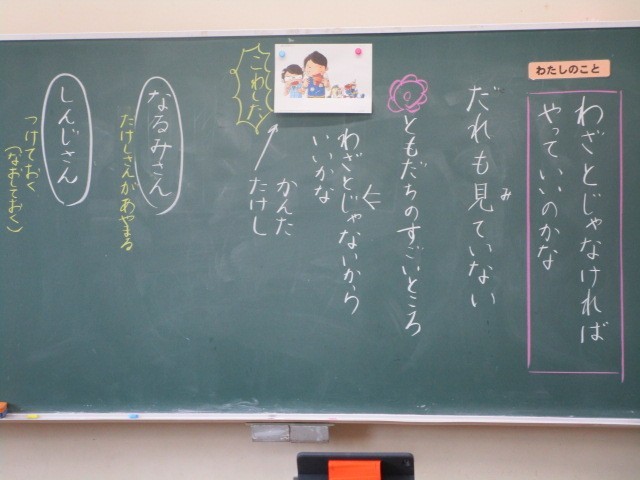 わたしのこと
わざとじゃなければ
やっていいのかな
だれも見ていない
み
ともだちのすごいところ
わざとじゃないから
いいかな
かんた
たけし
こわした
なるみさん
たけしさんがあやまる
しんじさん
つけておく
(なおしておく)